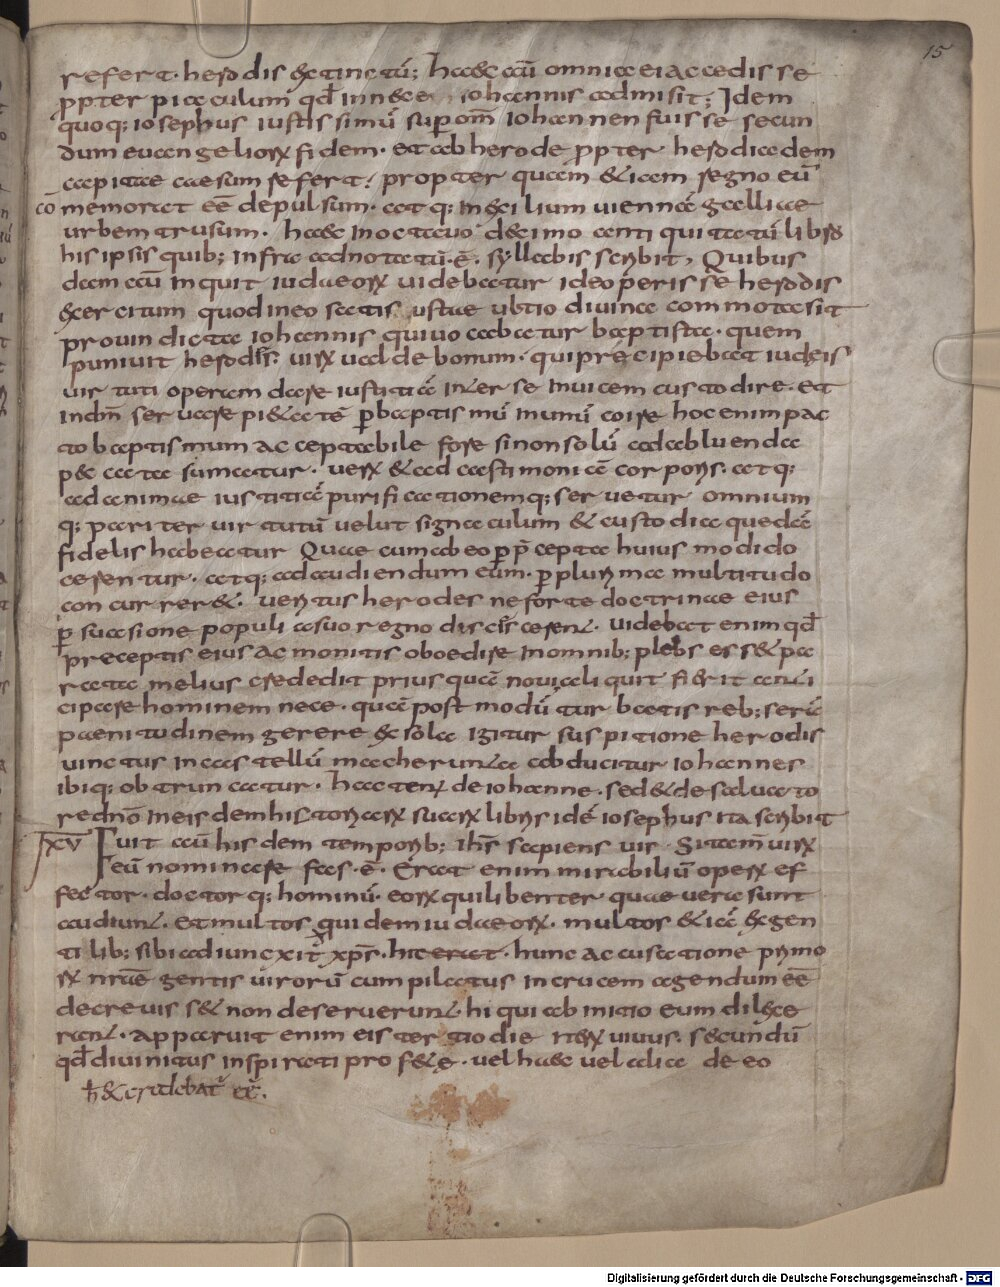 15
refert. herodis extinctū; haec cū omnia ei accedisse
ppter piaculum qd̄ innece iohannis admisit; Idem
quoq; iosephus iustissimū sup om̄ iohannen fuisse secun
dum euangeliorꝝ fidem. et ab herode ppter herodiadem
capitae caesum refert; propter quam & iam regno eū
co memorat eē depulsum. atq; inexilium uiennā galliae
urbem trusum. haec inoctauo decimo antiquitatū libro
his ipsis quib; infra adnotatū ē. syllabis scribit, Quibus
dam aū inquit iudaeorꝝ uidebatur ideo perisse herodis
exercitum quod in eo satis iustae ultio diuina commota sit
pro uindicta iohannis qui uocabatur baptista. quem
puniuit herodis. uirꝝ ualde bonum. qui precipiebat iudeis
uirtuti operam dare iustitiā inter se inuicem custodire. et
in dm̄ seruare pietatē p baptismū inunū coire hoc enim pac
to baptismum acceptabile fore si non solū ad abluenda
peccata sumatur. uerꝝ & ad castimoniā corporis. atq;
ad animae iustitiā purificationemq; seruetur omnium
q; pariter uirtutū uelut signaculum & custodia quedā
fidelis habeatur Quae cum ab eo p pcepta huius modi do
cerentur. atq; ad audiendum eum. p plurima multitudo
concurrer&. ueritus herodes ne forte doctrinae eius
p suasione populi a suo regno discis cerent. uidebat enim qd̄
preceptis eius ac monitis oboedire inomnib; plebs ess& pa
rata melius credidit priusquā noui aliquit fier&it anti
cipare hominem nece. quā post modū turbatis reb; serā
paenitudinem gerere ex sola igitur suspitione herodis
uinctus incastellū macherunta abducitur iohannes
ibiq; obtruncatur. hactenꝰ de iohanne. sed & de saluato
re dn̄o in eisdem historiarꝝ suarꝝ libris idē iosephus ita scribit
XV Fuit aū hisdem temporib; ihs̄ sapiens uir. Si tam̄ uirꝝ
eū nominare fas. ē. Erat enim mirabiliū operꝝ ef
fector. doctorq; hominū. eorꝝ qui libenter quae uera sunt
audiunt. Et multos quidem iudaeorꝝ. multos & iā ex gen
tilib; sibi adiunxit xp̄s. hic erat. hunc accusatione primo
rꝝ nr̄ae gentis uirorū cum pilatus incrucem agendum eē
decreuiss& non deserueruꝰ. hi qui ab initio eum dilexe
rant. apparuit enim eis tertio die iterꝝ uiuus. secundū
qd̄ diuinitus inspirati profete. uel haec uel alia de eo
h̄ & credebat̄ eē.
Digitalisierung gefördert durch die Deutsche Forschungsgemeinschaft - DFG